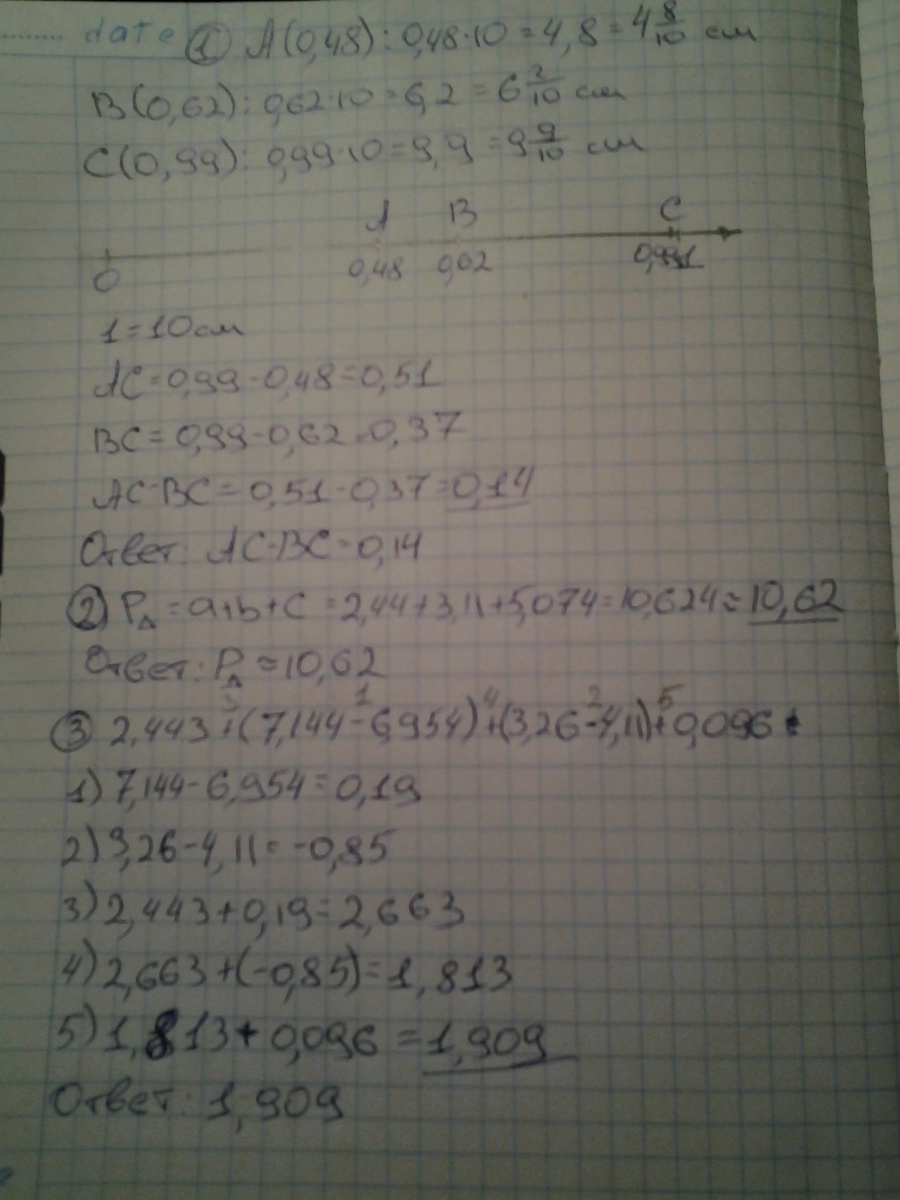 date ① A(0,48): 0,48·10 = 4,8 = 4 8/10 см
B(0,62): 0,62·10 = 6,2 = 6 2/10 см
C(0,99): 0,99·10 = 9,9 = 9 9/10 см
A B C
0 0,48 0,62 0,991
1=10см
AC=0,99-0,48=0,51
BC=0,99-0,62=0,37
AC-BC=0,51-0,37=0,14
Ответ: AC-BC=0,14
② P△ = a+b+c = 2,44+3,11+5,074=10,624≈10,62
Ответ: P△ ≈ 10,62
3 1 4 2 5
③ 2,443+(7,144-6,954)+(3,26-4,11)+0,096
1) 7,144-6,954=0,19
2) 3,26-4,11=-0,85
3) 2,443+0,19=2,663
4) 2,663+(-0,85)=1,813
5) 1,813+0,096=1,909
Ответ: 1,909